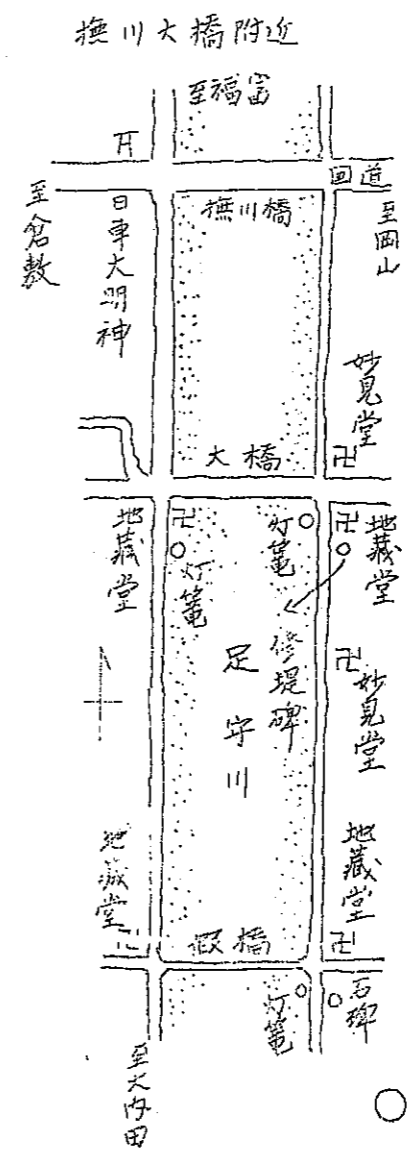 撫川大橋附近
至福富
国道
至倉敷
日車大明神
撫川橋
至岡山
妙見堂
卍
大橋
地蔵堂
卍
灯篭
灯篭
卍
地蔵堂
修堤碑
足守川
卍
妙見堂
地蔵堂
卍
仮橋
地蔵堂
卍
灯篭
石碑
至大内田